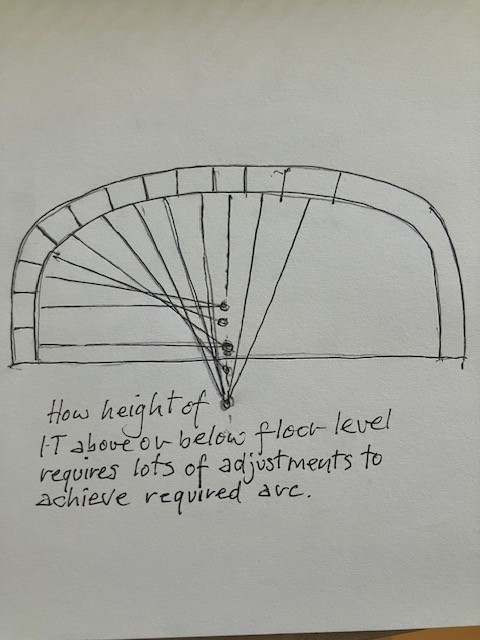 How height of
I-T above or below floor level
requires lots of adjustments to
achieve required arc.